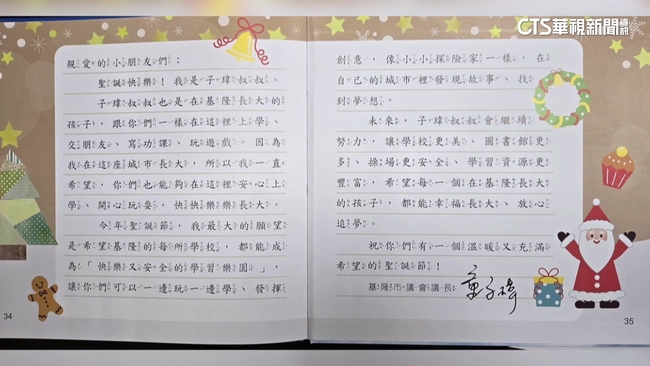 CTS華視新聞資訊
親愛的小朋友們：
聖誕快樂！我是子瑋叔叔。
子瑋叔叔也是在基隆長大的
孩子，跟你們一樣在這裡上學、
交朋友、寫功課、玩遊戲。因為
我在這座城市長大，所以我一直
希望，你們也能夠在這裡安心上
學、開心玩耍，快快樂樂長大。
今年聖誕節，我最大的願望
是希望基隆的每所學校，都能成
為「快樂又安全的學習樂園」，
讓你們可以一邊玩一邊學、發揮
34
創意，像小小探險家一樣，在
自己的城市裡發現故事、找
到夢想。
未來，子瑋叔叔會繼續
努力，讓學校更美、圖書館更
多、操場更安全、學習資源更
豐富，希望每一個在基隆長大
的孩子，都能幸福長大、放心
追夢。
祝你們有一個溫暖又充滿
希望的聖誕節！
基隆市議會議長 童子瑋
35